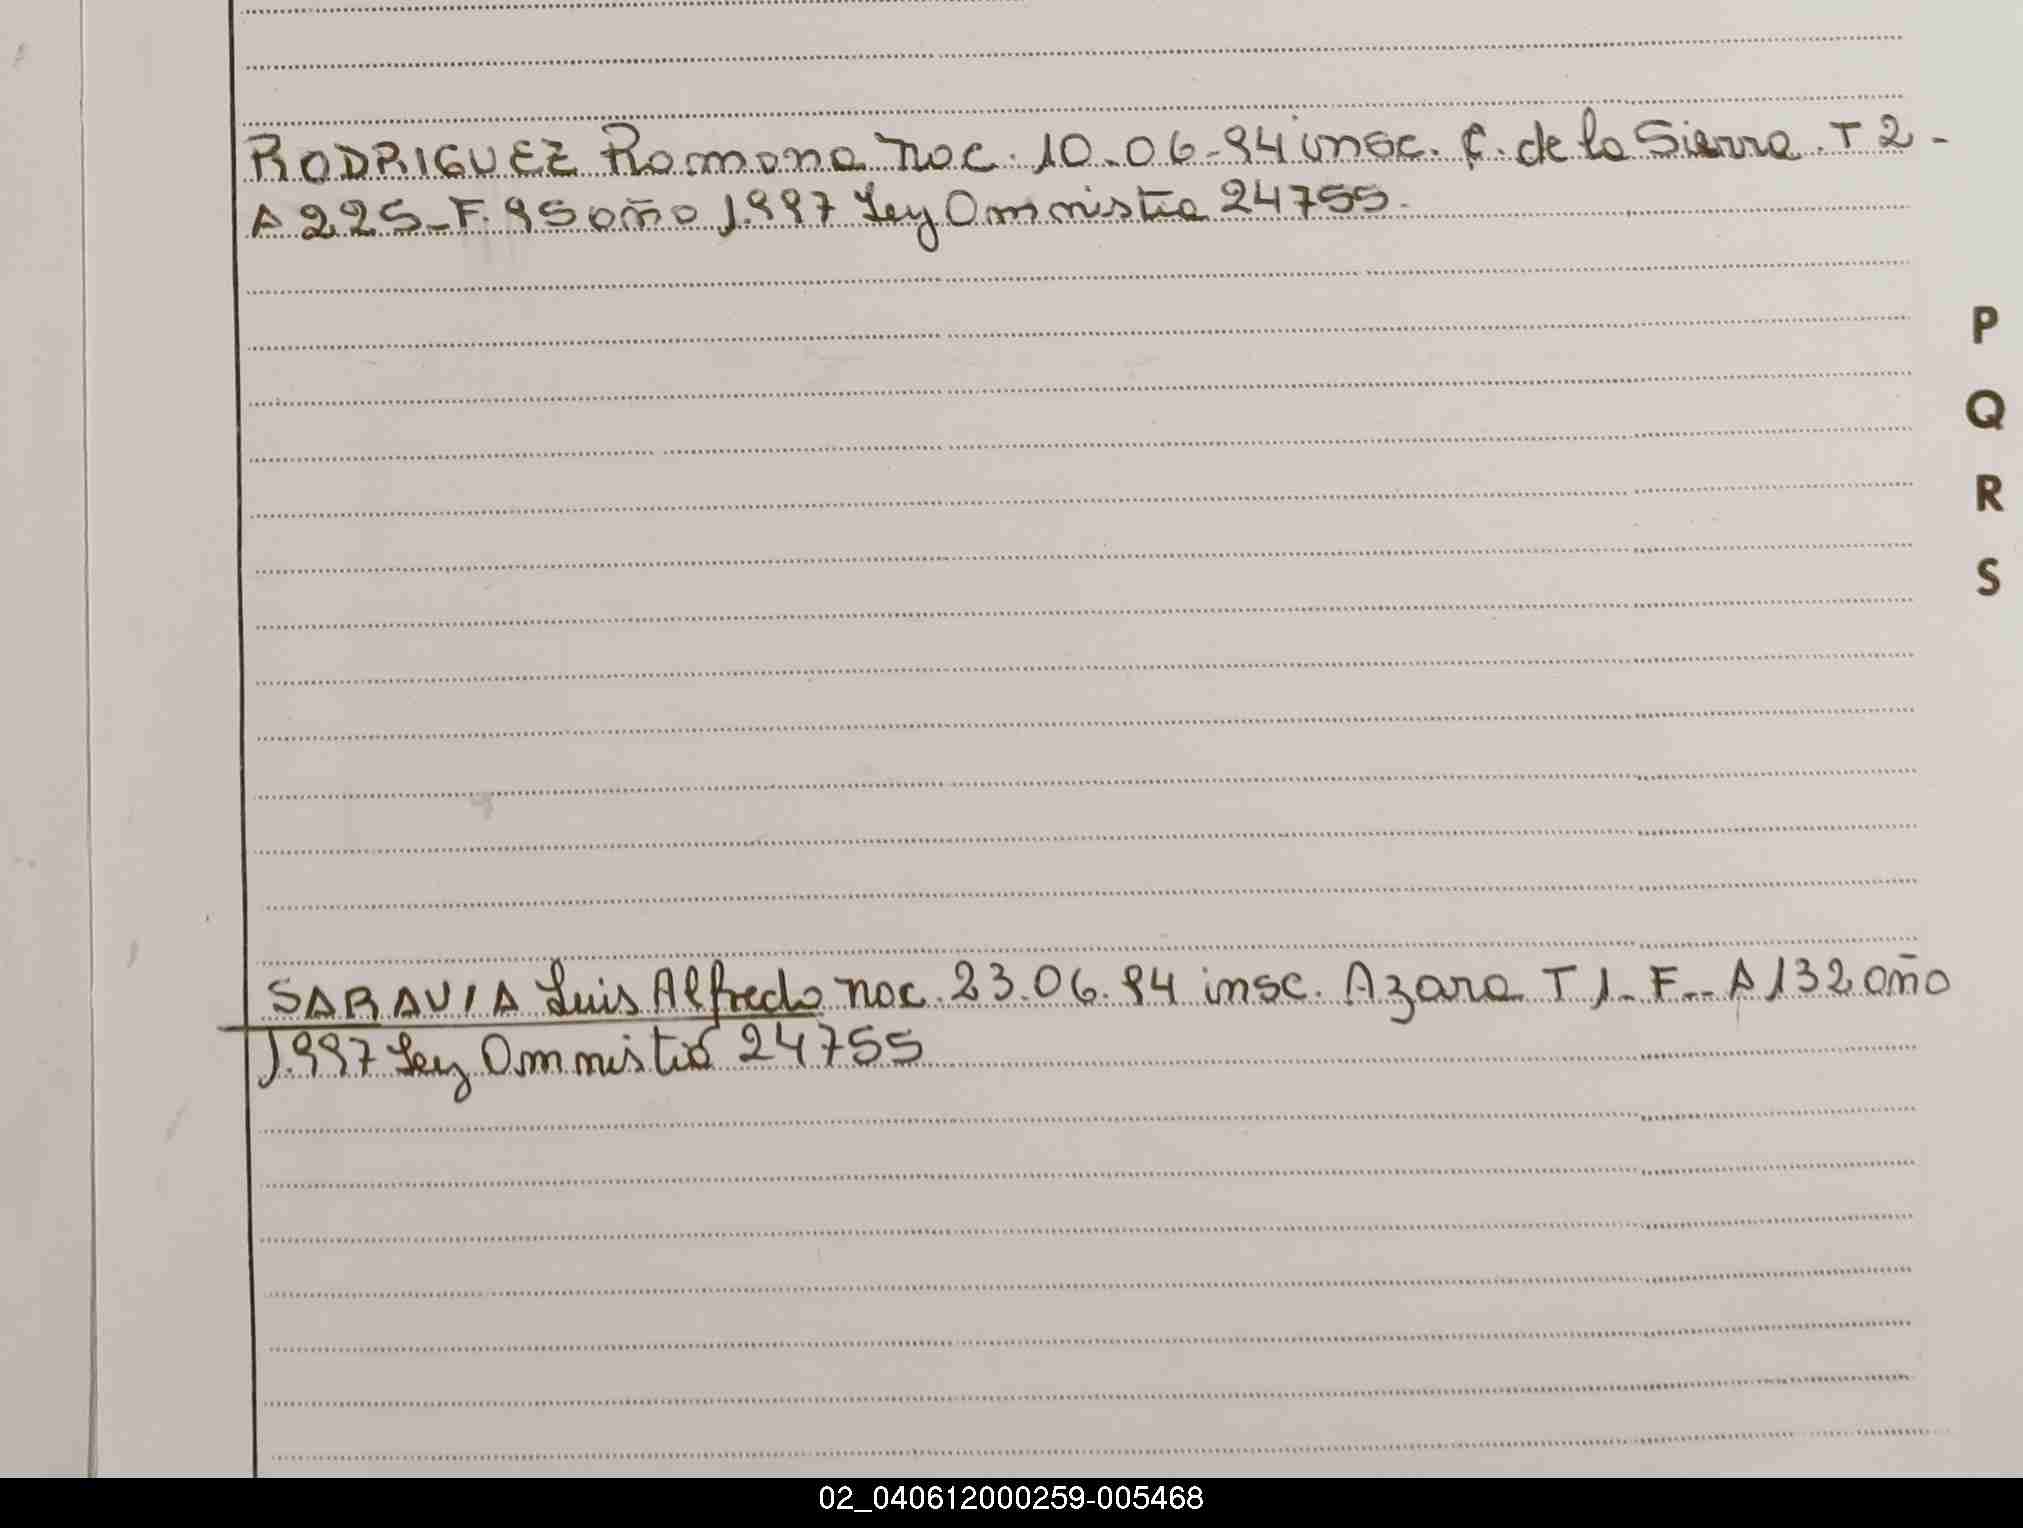 RODRIGUEZ Ramona nac. 10-06-94 insc. C. de la Sierra. T 2-
A 225-F. 95 año 1.997 Ley Omnistia 24755.
P
Q
R
S
SARAVIA Luis Alfredo nac. 23.06.94 insc. Azara T 1-F--A 132 año
1.997 Ley Omnistia 24755
02_040612000259-005468